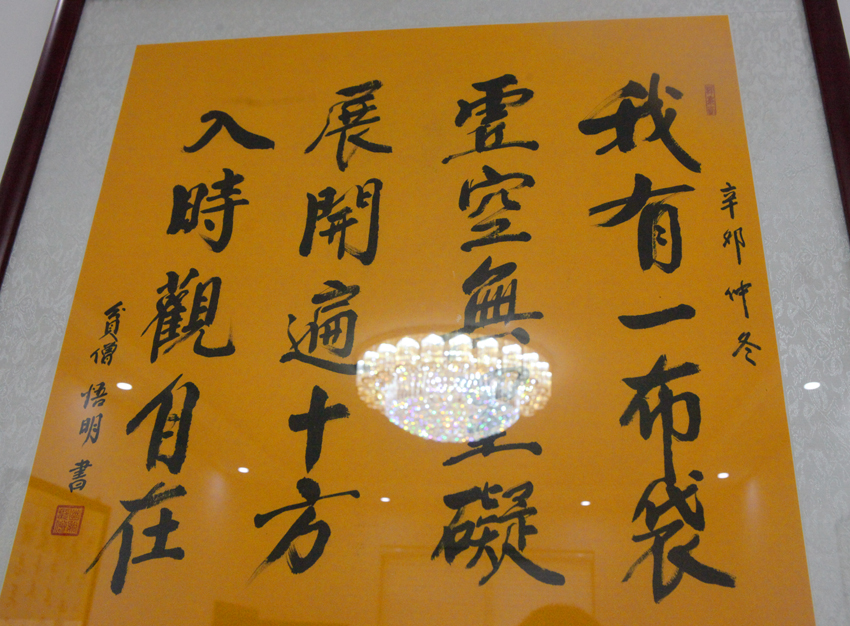 辛卯仲冬
我有一布袋
虛空無罣礙
展開遍十方
入時觀自在
貧僧悟明書